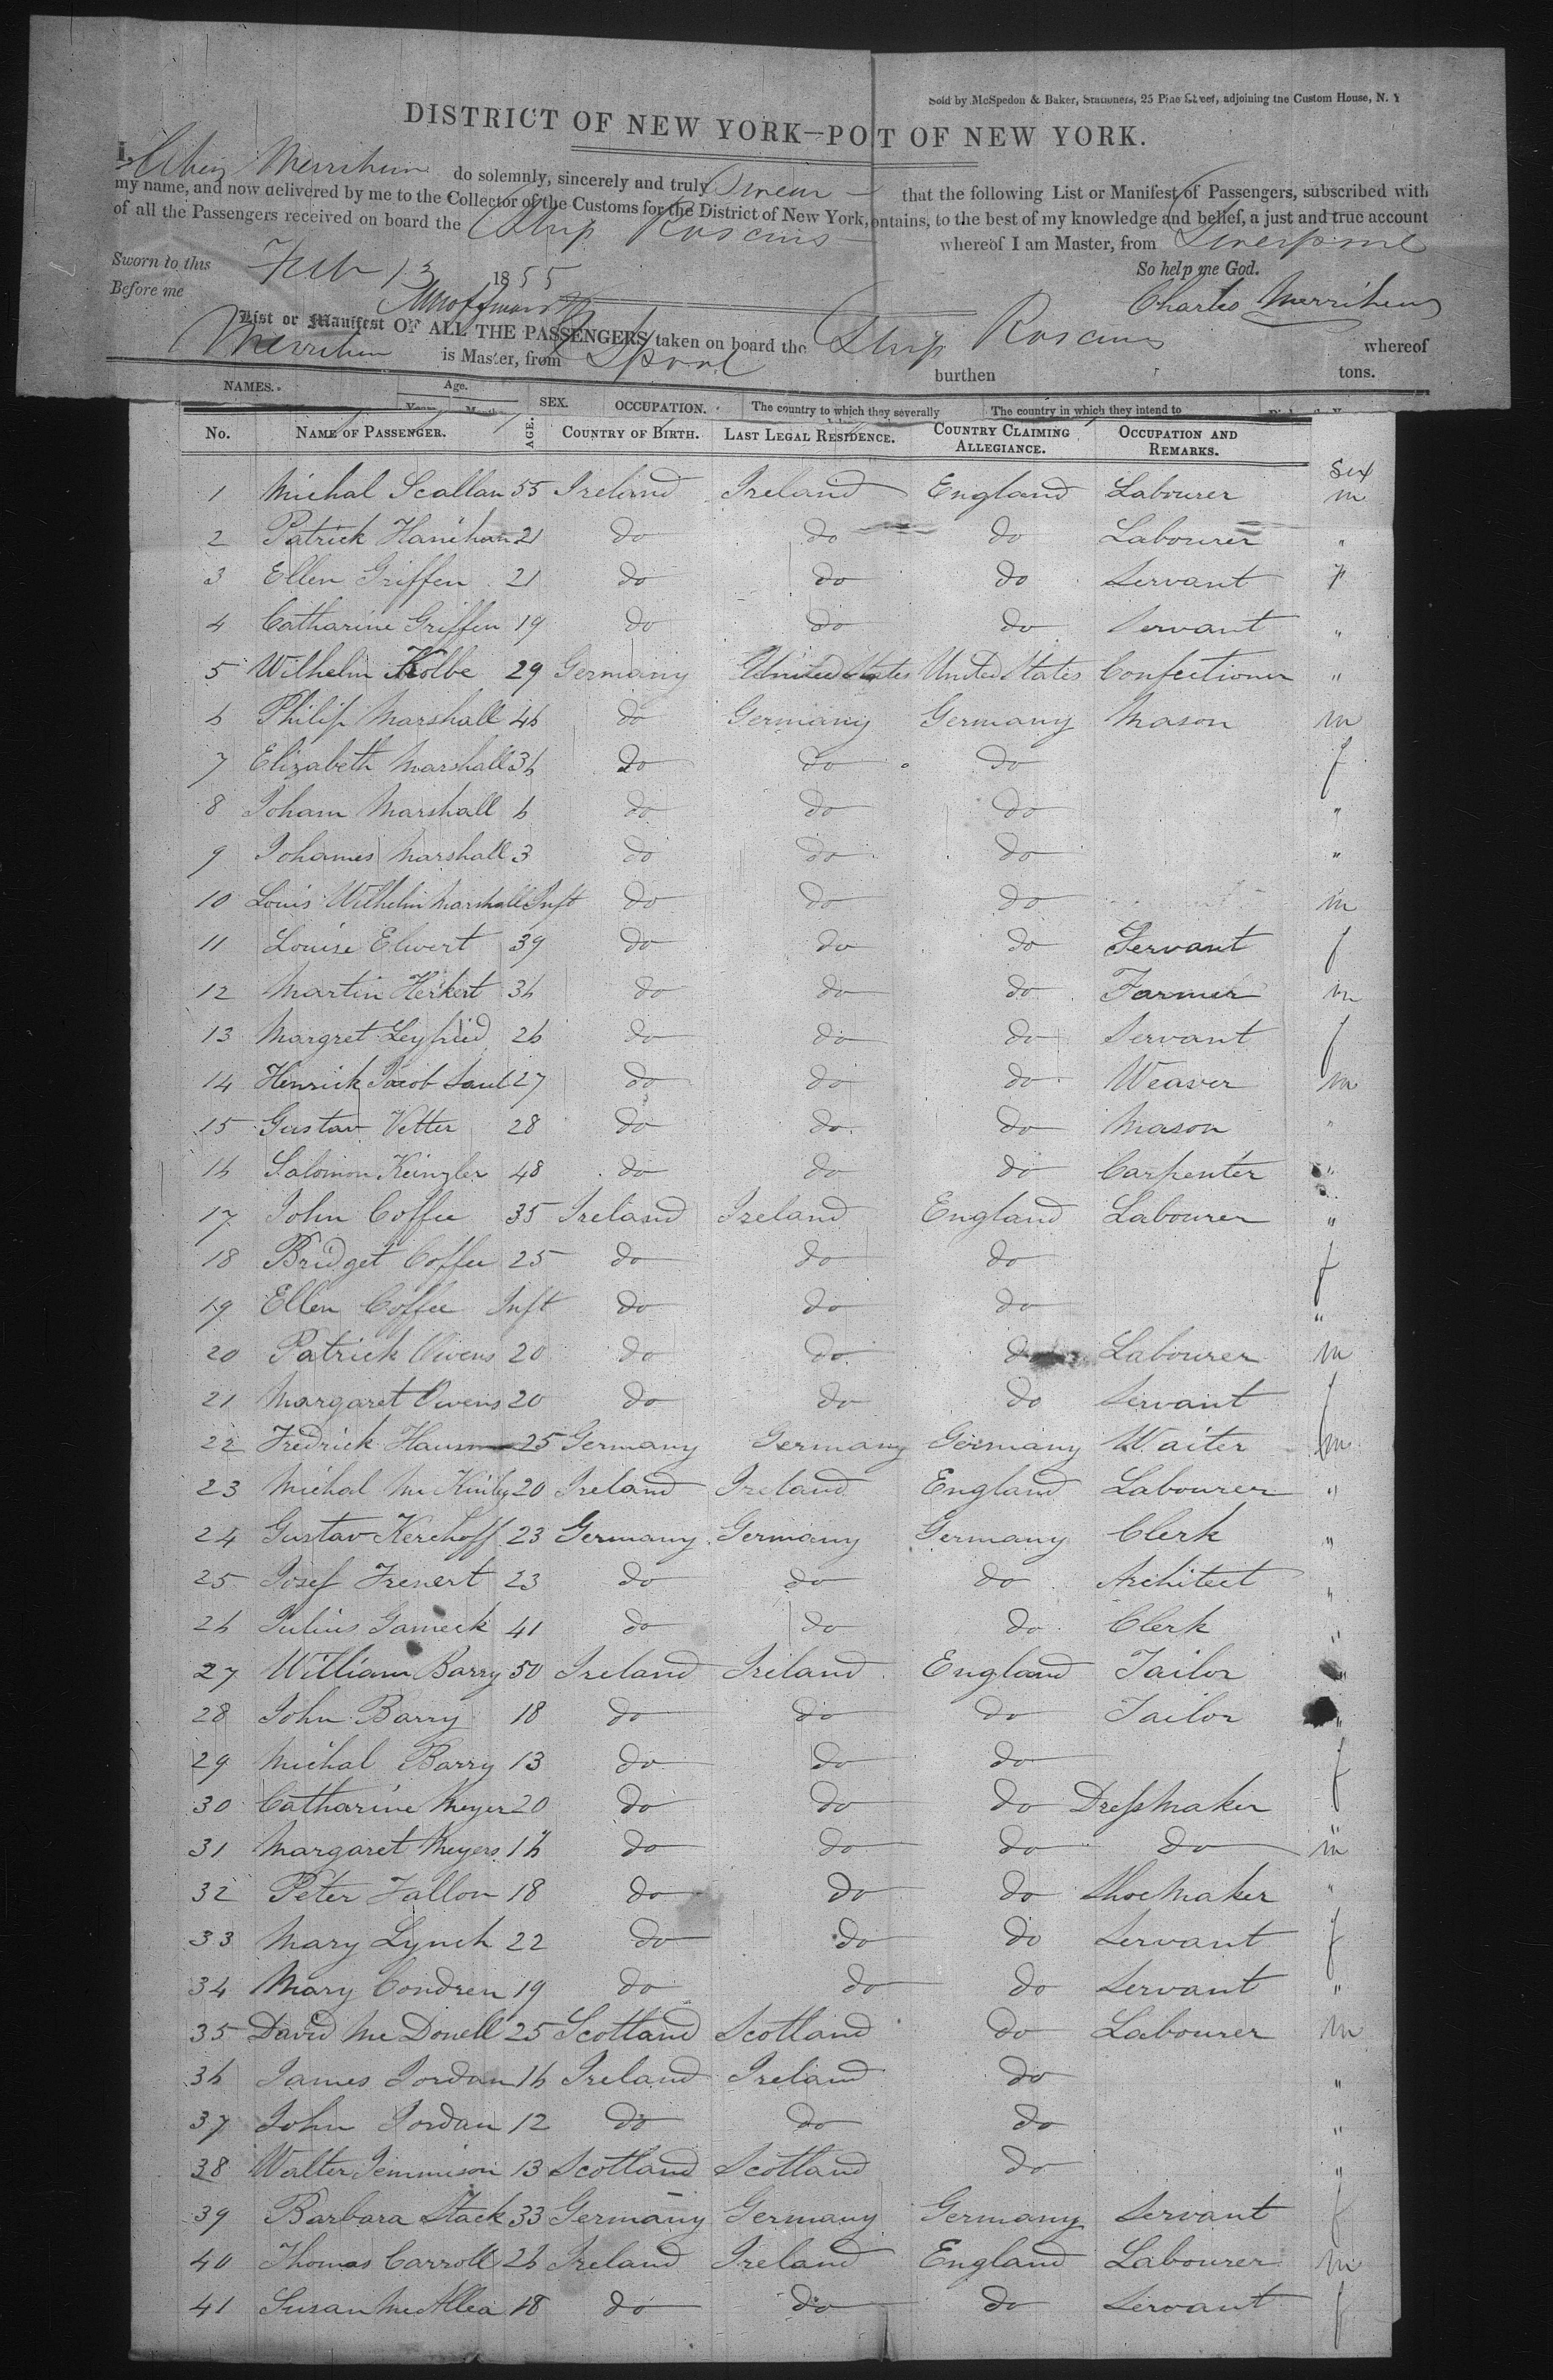 Sold by McSpedon & Baker, Stationers, 25 Pine Street, adjoining the Custom House, N. Y
DISTRICT OF NEW YORK—PO T OF NEW YORK.
I, Merrihew do solemnly, sincerely and truly Swear that the following List or Manifest of Passengers, subscribed with
my name, and now delivered by me to the Collector of the Customs for the District of New York, ontains, to the best of my knowledge and belief, a just and true account
of all the Passengers received on board the Ship Roscius whereof I am Master, from Liverpool
Sworn to this Feb 13 1855 So help me God.
Before me Charles Merrihew
List or Manifest OF ALL THE PASSENGERS taken on board the Ship Roscius whereof
Merrihew is Master, from LPool burthen tons.
NAMES. Age. SEX. OCCUPATION. The country to which they severally The country in which they intend to
Years Months
No. NAME OF PASSENGER. AGE. COUNTRY OF BIRTH. LAST LEGAL RESIDENCE. COUNTRY CLAIMING ALLEGIANCE. OCCUPATION AND REMARKS. Sex
1 Michal Scallan 55 Ireland Ireland England Labourer m
2 Patrick Hanihan 21 do do do Labourer "
3 Ellen Griffen 21 do do do Servant F
4 Catharine Griffen 19 do do do Servant "
5 Wilhelm Kolbe 29 Germany United States United States Confectioner "
6 Philip Marshall 46 do Germany Germany Mason m
7 Elizabeth Marshall 36 do do do f
8 Joham Marshall 6 do do do "
9 Johames Marshall 3 do do do "
10 Louis Wilhelm Marshall Inft do do do m
11 Louise Elwert 39 do do do Servant f
12 Martin Herkert 36 do do do Farmer m
13 Margret 26 do do do Servant f
14 Henrick Jacob Saul 27 do do do Weaver m
15 Gustav Vetter 28 do do do Mason "
16 Salomon Keinzler 48 do do do Carpenter "
17 John Coffee 35 Ireland Ireland England Labourer "
18 Bridget Coffee 25 do do do f
19 Ellen Coffee Inft do do do "
20 Patrick Owens 20 do do do Labourer m
21 Margaret Owens 20 do do do Servant f
22 Fredrick 25 Germany Germany Germany Waiter m
23 Michal Mc Kinley 20 Ireland Ireland England Labourer "
24 Gustav Kerchoff 23 Germany Germany Germany Clerk "
25 Josef Frenert 23 do do do Architect "
26 Julius Gameck 41 do do do Clerk "
27 William Barry 50 Ireland Ireland England Tailor "
28 John Barry 18 do do do Tailor "
29 Michal Barry 13 do do do f
30 Catharine Meyer 20 do do do Dressmaker f
31 Margaret Meyers 16 do do do do m
32 Peter Fallon 18 do do do Shoemaker "
33 Mary Lynch 22 do do do Servant f
34 Mary Condren 19 do do do Servant "
35 David Mc Donell 25 Scotland Scotland do Labourer m
36 James Jordan 16 Ireland Ireland do "
37 John Jordan 12 do do do "
38 Walter Jemmison 13 Scotland Scotland do "
39 Barbara Stack 33 Germany Germany Germany Servant f
40 Thomas Carroll 26 Ireland Ireland England Labourer m
41 Susan McAllea 18 do do do Servant f